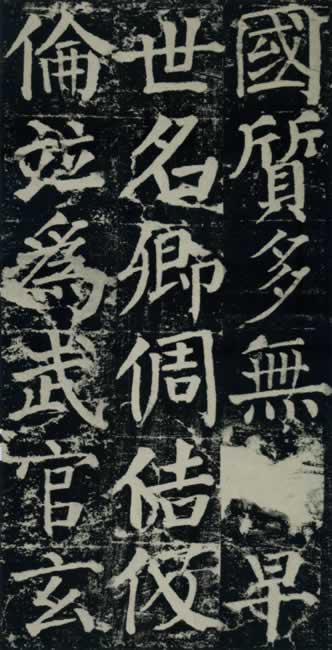 國質多無早
世名卿倜佶伋
倫並為武官玄